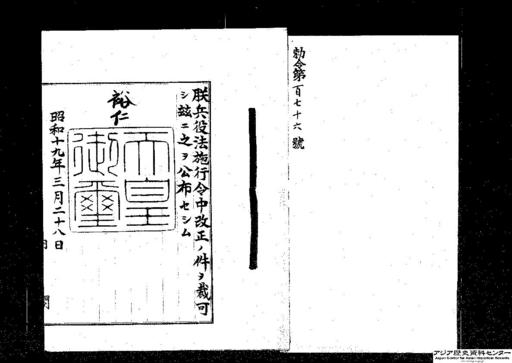 勅令第百七十六號
朕兵役法施行令中改正ノ件ヲ裁可
シ玆ニ之ヲ公布セシム
裕仁
天皇
御璽
昭和十九年三月二十八日
アジア歴史資料センター
Japan Center for Asian Historical Records